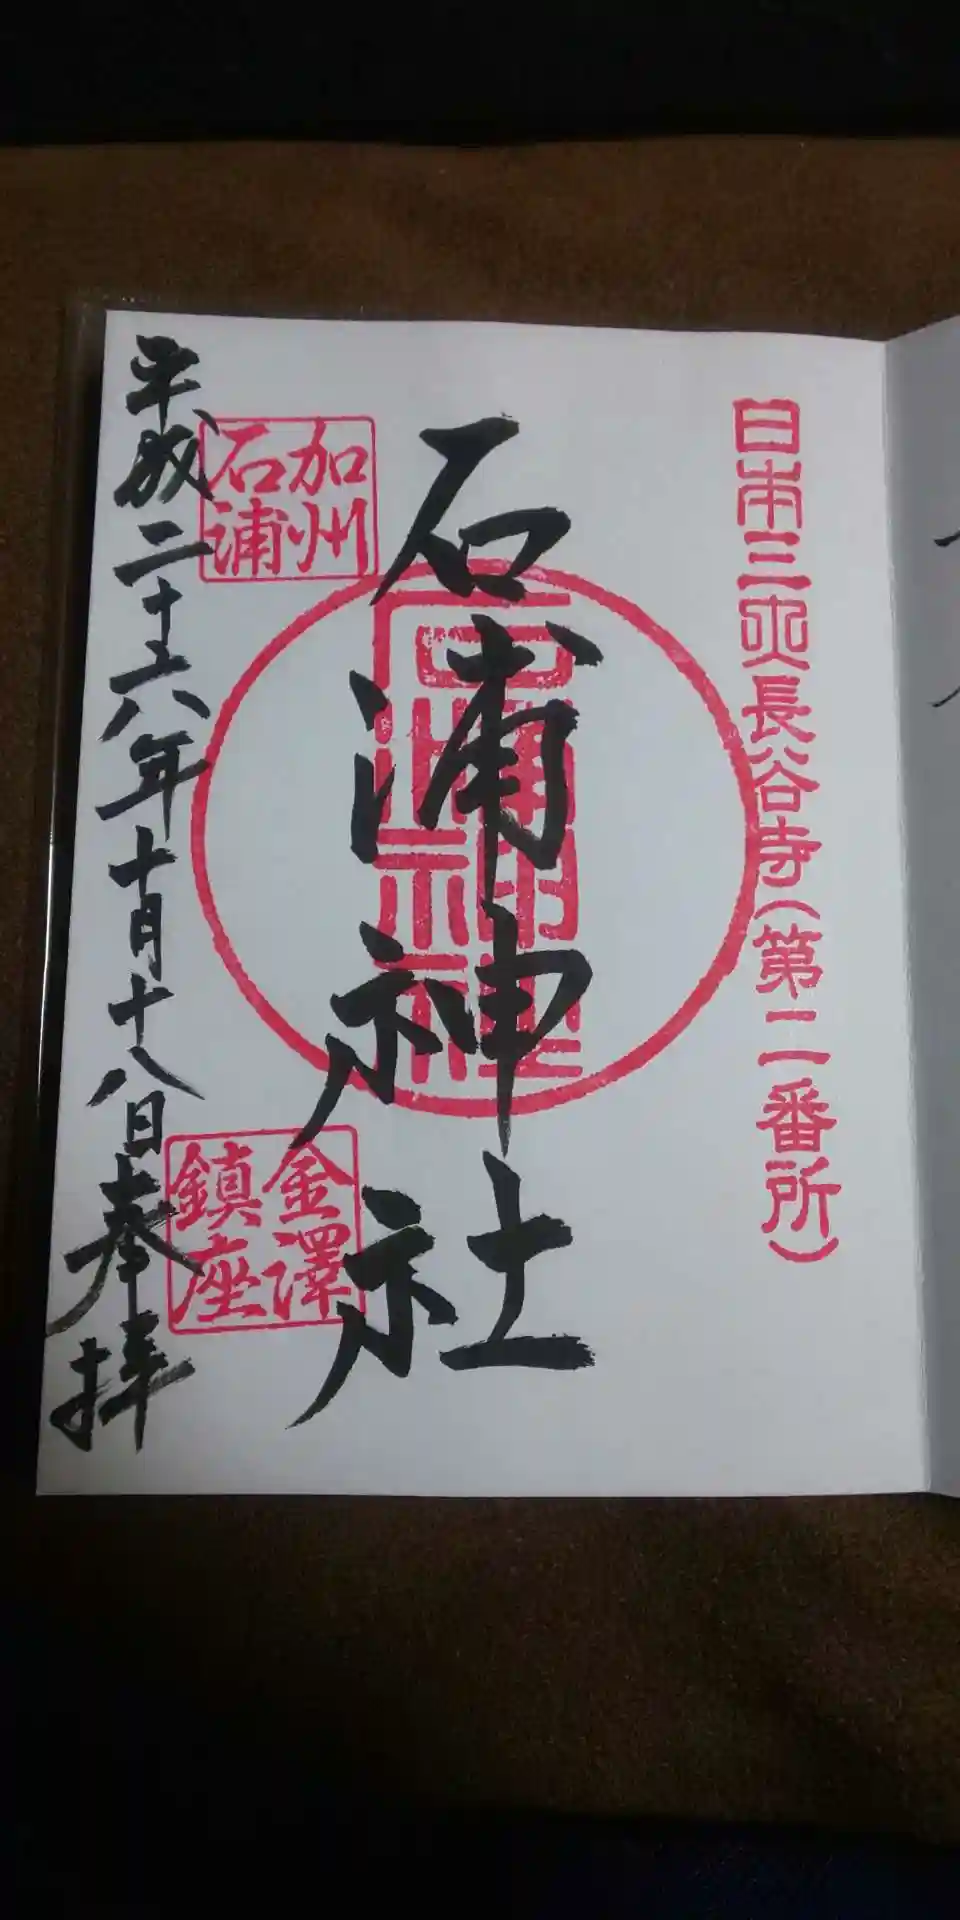 日本三大長谷寺(第二番所)
石浦神社
石浦神社
加州
石浦
金澤
鎮座
平成二十六年十月十八日奉拝